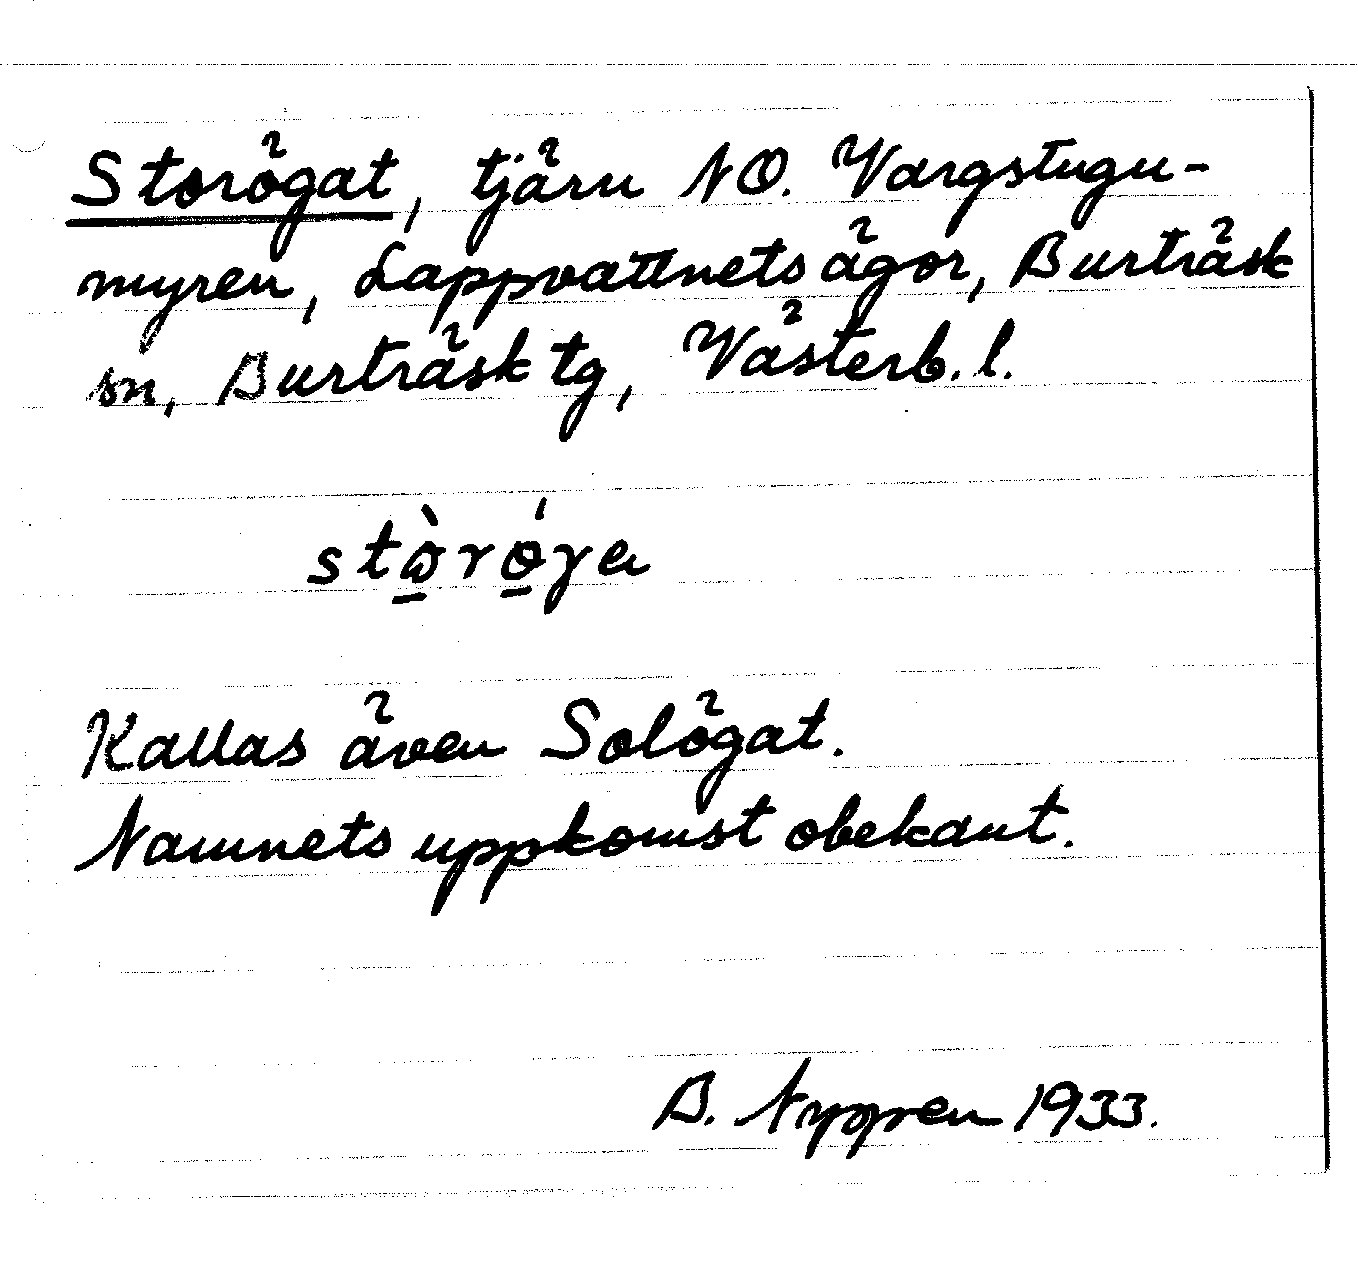 Storögat, tjärn NO. Vargstugu-
myren, Lappvattnets ägor, Burträsk
sn, Burträsk tg, Västerb. l.
Kallas även Solögat.
Namnets uppkomst obekant.
B. Nygren 1933.